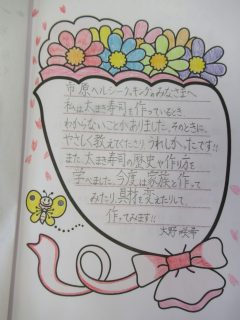 市原ヘルシークッキングのみなさまへ
私は太まき寿司を作っているとき
わからないことがありました。そのときに、
やさしく教えてくださりうれしかったです!!
また、太まき寿司の歴史や作り方を
学べました。今度は家族と作って
みたり、具材を変えたりして
作ってみます!!
大野 咲希